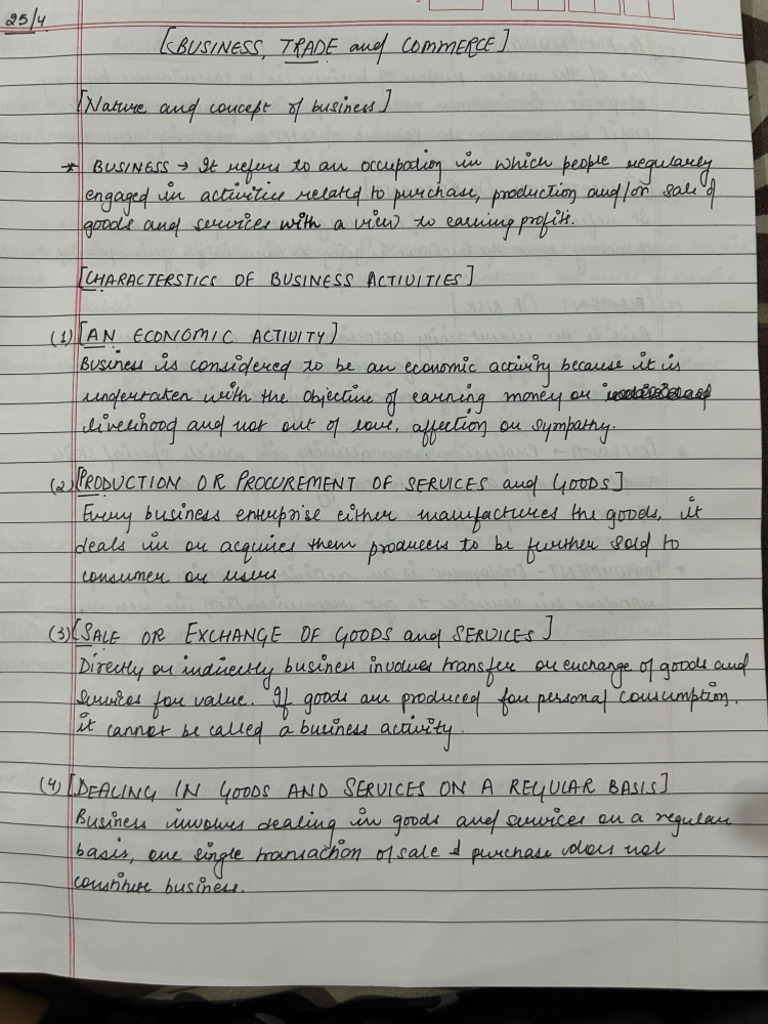 25/4
[BUSINESS, TRADE and COMMERCE]
[Nature and concept of business]
* BUSINESS → It refers to an occupation in which people regularly
engaged in activities related to purchase, production and/or sale of
goods and services with a view to earning profits.
[CHARACTERSTICS OF BUSINESS ACTIVITIES]
(1) [AN ECONOMIC ACTIVITY]
Business is considered to be an economic activity because it is
undertaken with the objective of earning money or
livelihood and not out of love, affection or sympathy.
(2) [PRODUCTION OR PROCUREMENT OF SERVICES and GOODS]
Every business enterprise either manufactures the goods, it
deals in or acquires them producers to be further sold to
consumer or user
(3) [SALE OR EXCHANGE OF GOODS and SERVICES]
Directly or indirectly business involves transfer or exchange of goods and
services for value. If goods are produced for personal consumption,
it cannot be called a business activity.
(4) [DEALING IN GOODS AND SERVICES ON A REGULAR BASIS]
Business involves dealing in goods and services on a regular
basis, one single transaction of sale & purchase does not
constitute business.